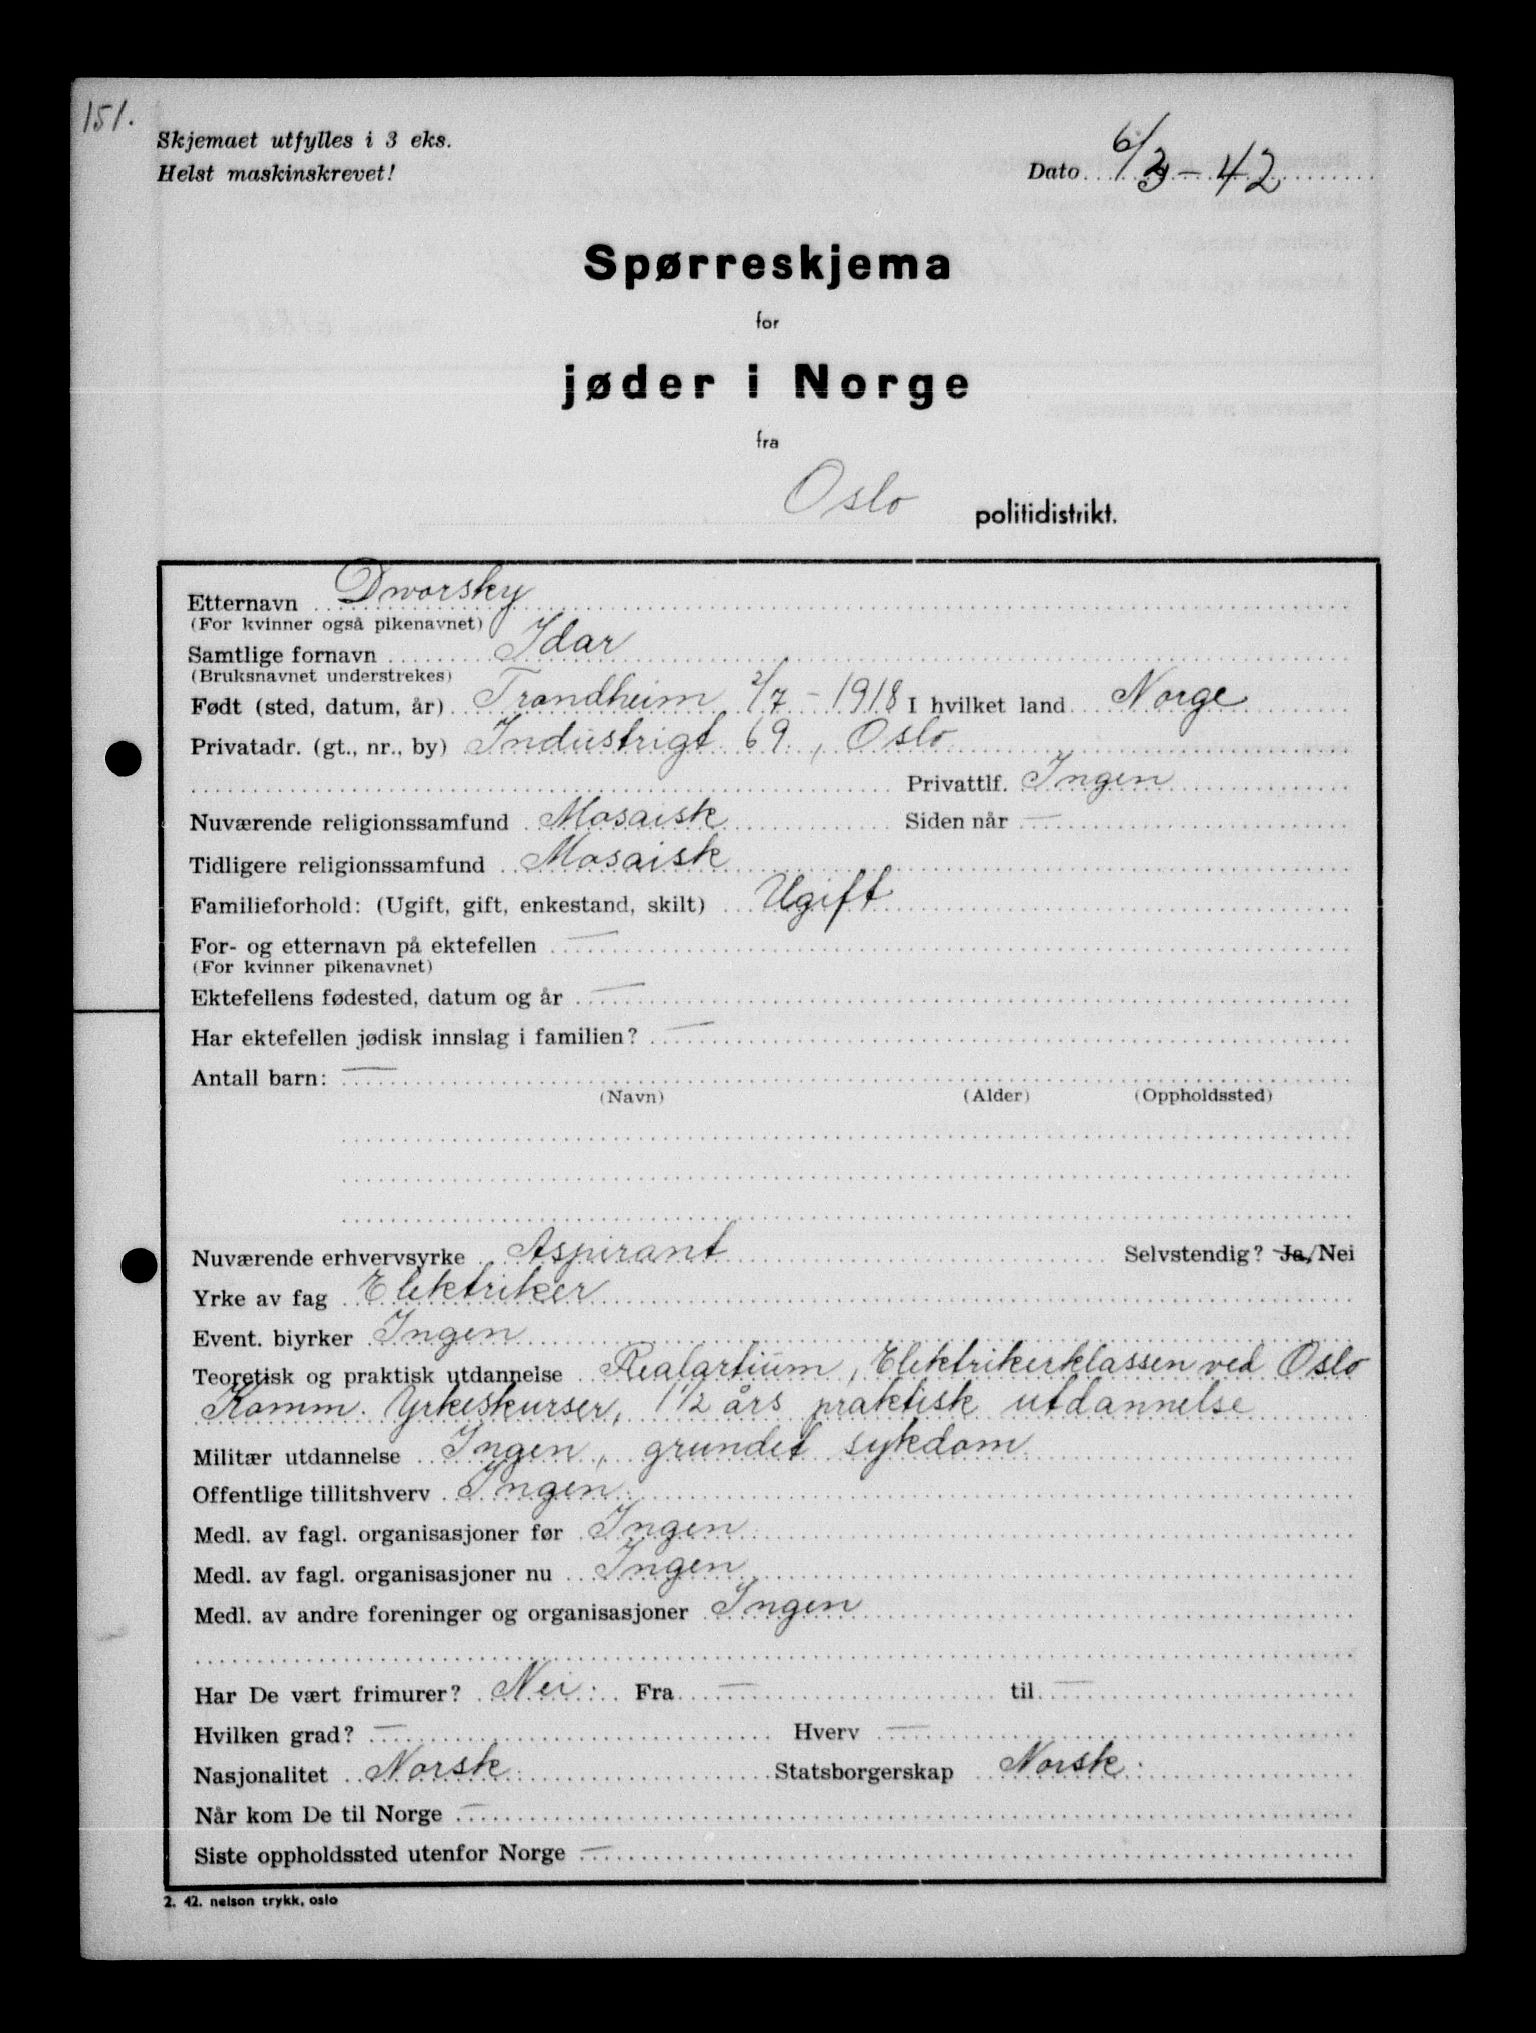 151.
Skjemaet utfylles i 3 eks.
Helst maskinskrevet!
Dato 6/3-42
Spørreskjema
for
jøder i Norge
fra
Oslo politidistrikt.
Etternavn Dworsky
(For kvinner også pikenavnet)
Samtlige fornavn Idar
(Bruksnavnet understrekes)
Født (sted, datum, år) Trondheim 2/7 - 1918 I hvilket land Norge
Privatadr. (gt., nr., by) Industrigt 69, Oslo
Privattlf. Ingen
Nuværende religionssamfund Mosaisk Siden når —
Tidligere religionssamfund Mosaisk
Familieforhold: (Ugift, gift, enkestand, skilt) Ugift
For- og etternavn på ektefellen —
(For kvinner pikenavnet)
Ektefellens fødested, datum og år —
Har ektefellen jødisk innslag i familien? —
Antall barn: —
(Navn) (Alder) (Oppholdssted)
Nuværende erhvervsyrke Aspirant Selvstendig? Ja/Nei
Yrke av fag Elektriker
Event. biyrker Ingen
Teoretisk og praktisk utdannelse Realartium, Elektrikerklassen ved Oslo
Komm. Yrkeskurser, 1 1/2 års praktisk utdannelse
Militær utdannelse Ingen, grundet sykdom
Offentlige tillitshverv Ingen
Medl. av fagl. organisasjoner før Ingen
Medl. av fagl. organisasjoner nu Ingen
Medl. av andre foreninger og organisasjoner Ingen
Har De vært frimurer? Nei. Fra — til —
Hvilken grad? — Hverv —
Nasjonalitet Norsk Statsborgerskap Norsk.
Når kom De til Norge —
Siste oppholdssted utenfor Norge —
2. 42. nelson trykk, oslo